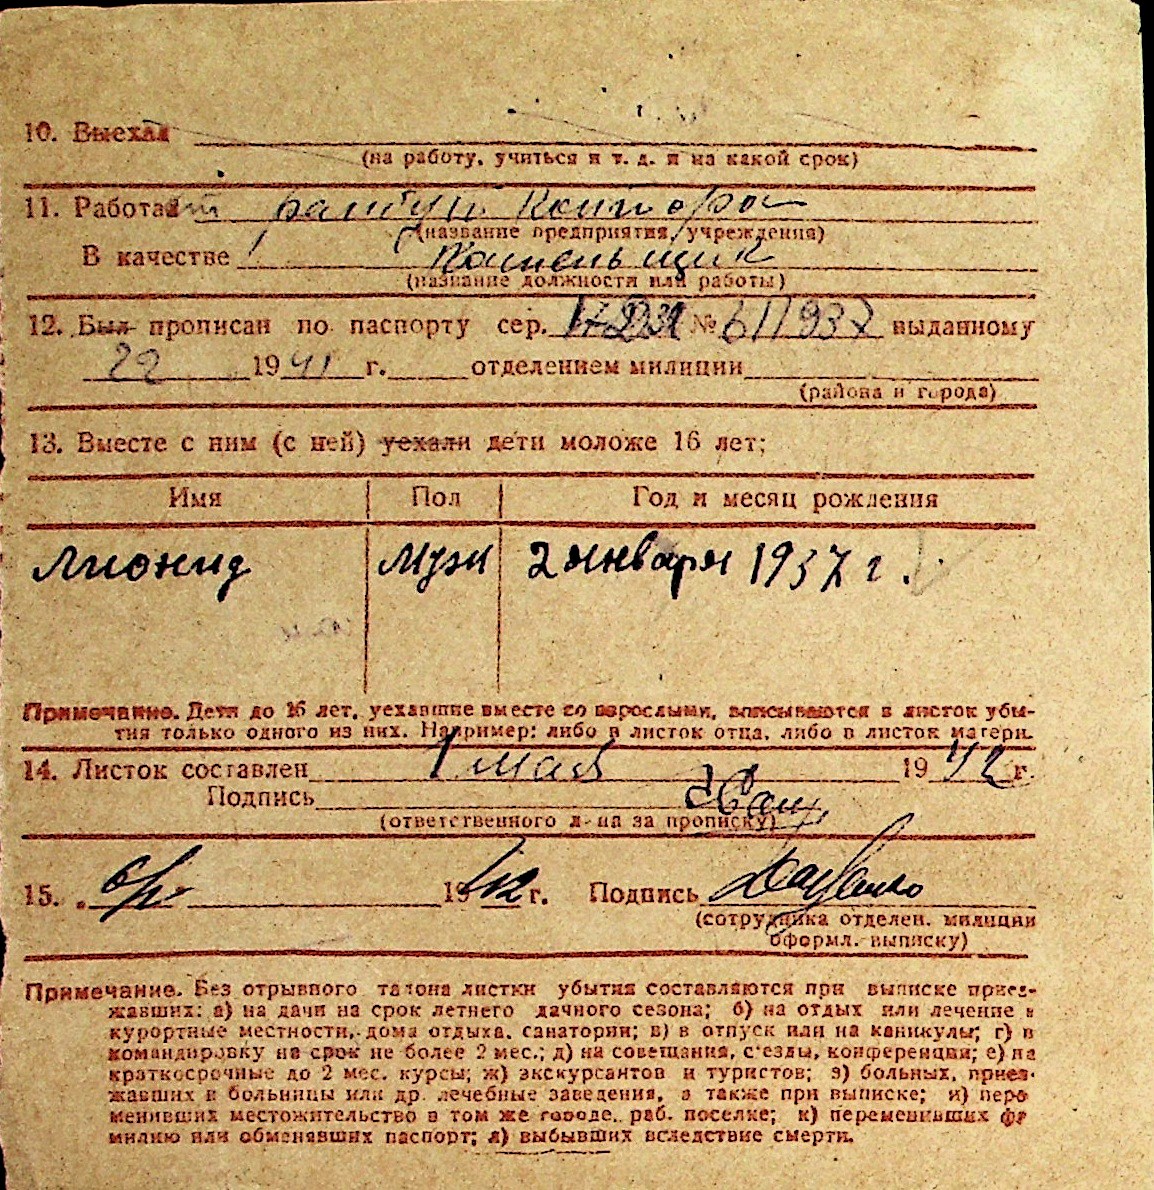 10. Выехал
(на работу, учиться и т. д. и на какой срок)
11. Работает контора
(название предприятия, учреждения)
В качестве
(название должности или работы)
12. Был прописан по паспорту сер. № 611937 выданному
22 1941 г. отделением милиции
(района и города)
13. Вместе с ним (с ней) уехали дети моложе 16 лет;
Имя Пол Год и месяц рождения
Лионид Муж 2 января 1937 г.
Примечание. Дети до 16 лет, уехавшие вместе со взрослыми, вписываются в листок убы-
тия только одного из них. Например: либо в листок отца, либо в листок матери.
14. Листок составлен 1 мая 1942 г.
Подпись
(ответственного л-на за прописку)
15. 1942 г. Подпись
(сотрудника отделен. милиции
оформл. выписку)
Примечание. Без отрывного талона листки убытия составляются при выписке приез-
жавших: а) на дачи на срок летнего дачного сезона; б) на отдых или лечение в
курортные местности, дома отдыха, санатории; в) в отпуск или на каникулы; г) в
командировку на срок не более 2 мес.; д) на совещания, с'езды, конференции; е) на
краткосрочные до 2 мес. курсы; ж) экскурсантов и туристов; з) больных, приез-
жавших в больницы или др. лечебные заведения, а также при выписке; и) пере
менивших местожительство в том же городе, раб. поселке; к) переменивших фа
милию или обменявших паспорт; л) выбывших вследствие смерти.